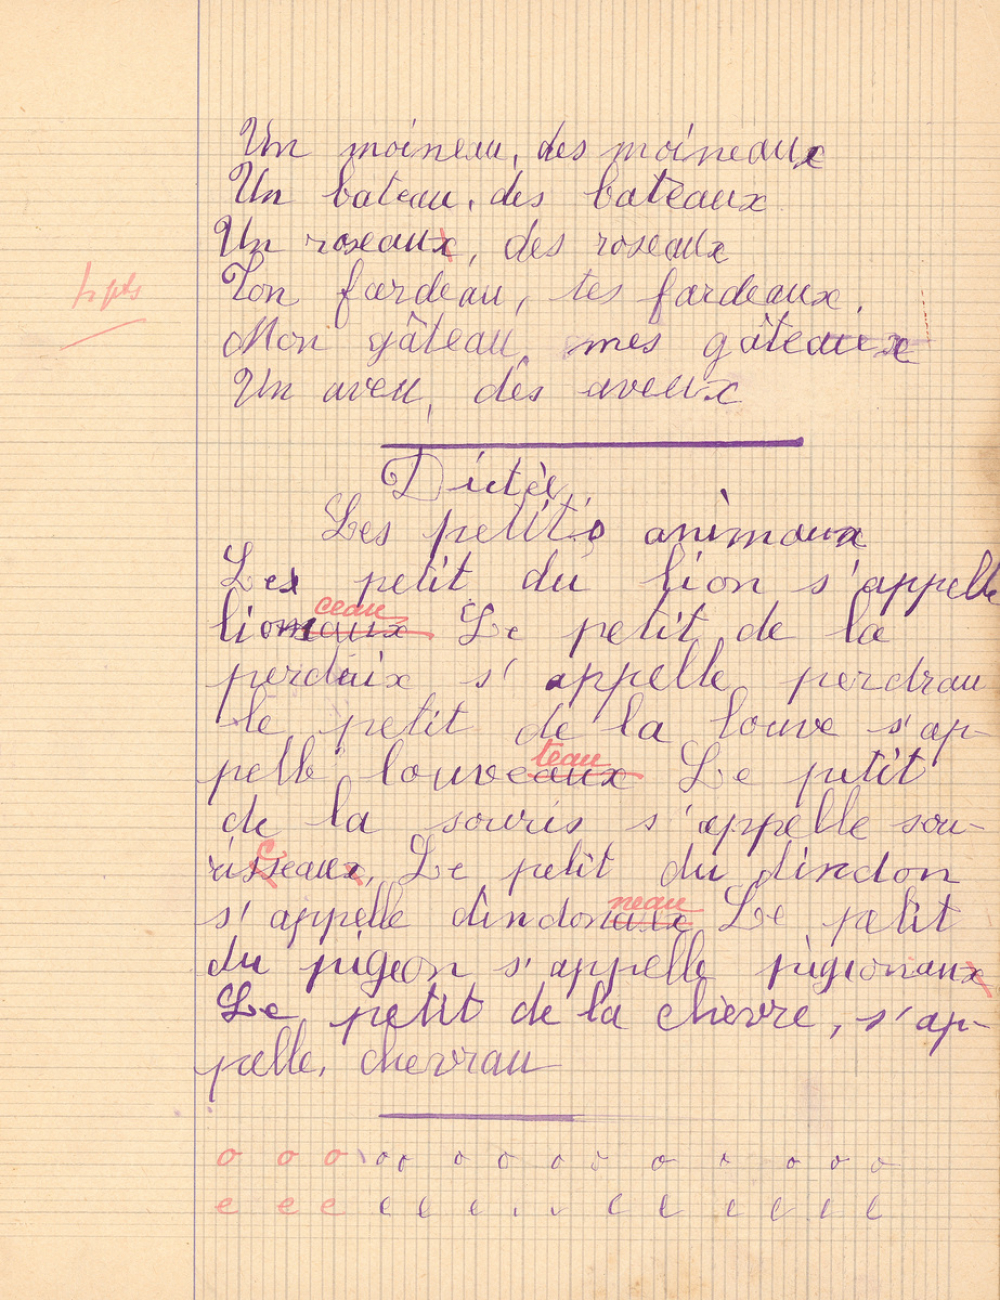 Un moineau, des moineaux
Un bateau, des bateaux
Un roseaux, des roseaux
Ton fardeau, tes fardeaux.
Mon gâteau, mes gâteaux
Un aveu, des aveux
Dictée
Les petits animaux
Les petit du lion s'appelle
ceau
lionnaux Le petit de la
perdrix s'appelle perdrau
le petit de la louve s'ap-
teau
pelle louveaux Le petit
de la souris s'appelle sou-
risseaux, Le petit du dindon
neau
s'appelle dindonaux Le petit
du pigeon s'appelle pigionaux
Le petit de la chèvre, s'ap-
pelle, chevrau
o o o o o o o o o o o o o
e e e e e e e e e e e e